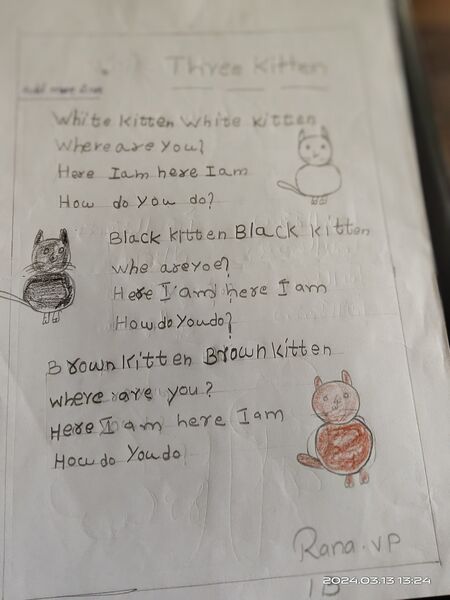 Three Kitten
add more lines
White kitten White kitten
Where are you?
Here Iam here Iam
How do you do?
Black kitten Black kitten
whe areyoe?
Here I am here I am
How do You do?
Brown kitten Brown kitten
where are you?
Here I am here Iam
How do You do
Rana.VP
1B
2024.03.13 13:24